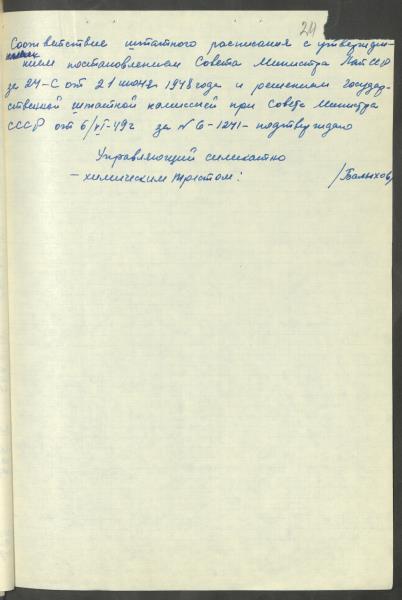 24
Соответствие штатного расписания с утвержден-
ным постановлением Совета Министра Лат ССР
за 24-С от 21 июня 1948 года и решением государ-
ственной штатной комиссией при Совете Министра
СССР от 6/VI-49 г за № 6-1241- подтверждаю
Управляющий силикатно
- химическим трестом:
/Балыхов/